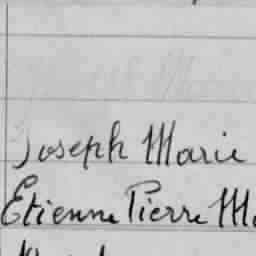 Joseph Marie
Etienne Pierre Ma